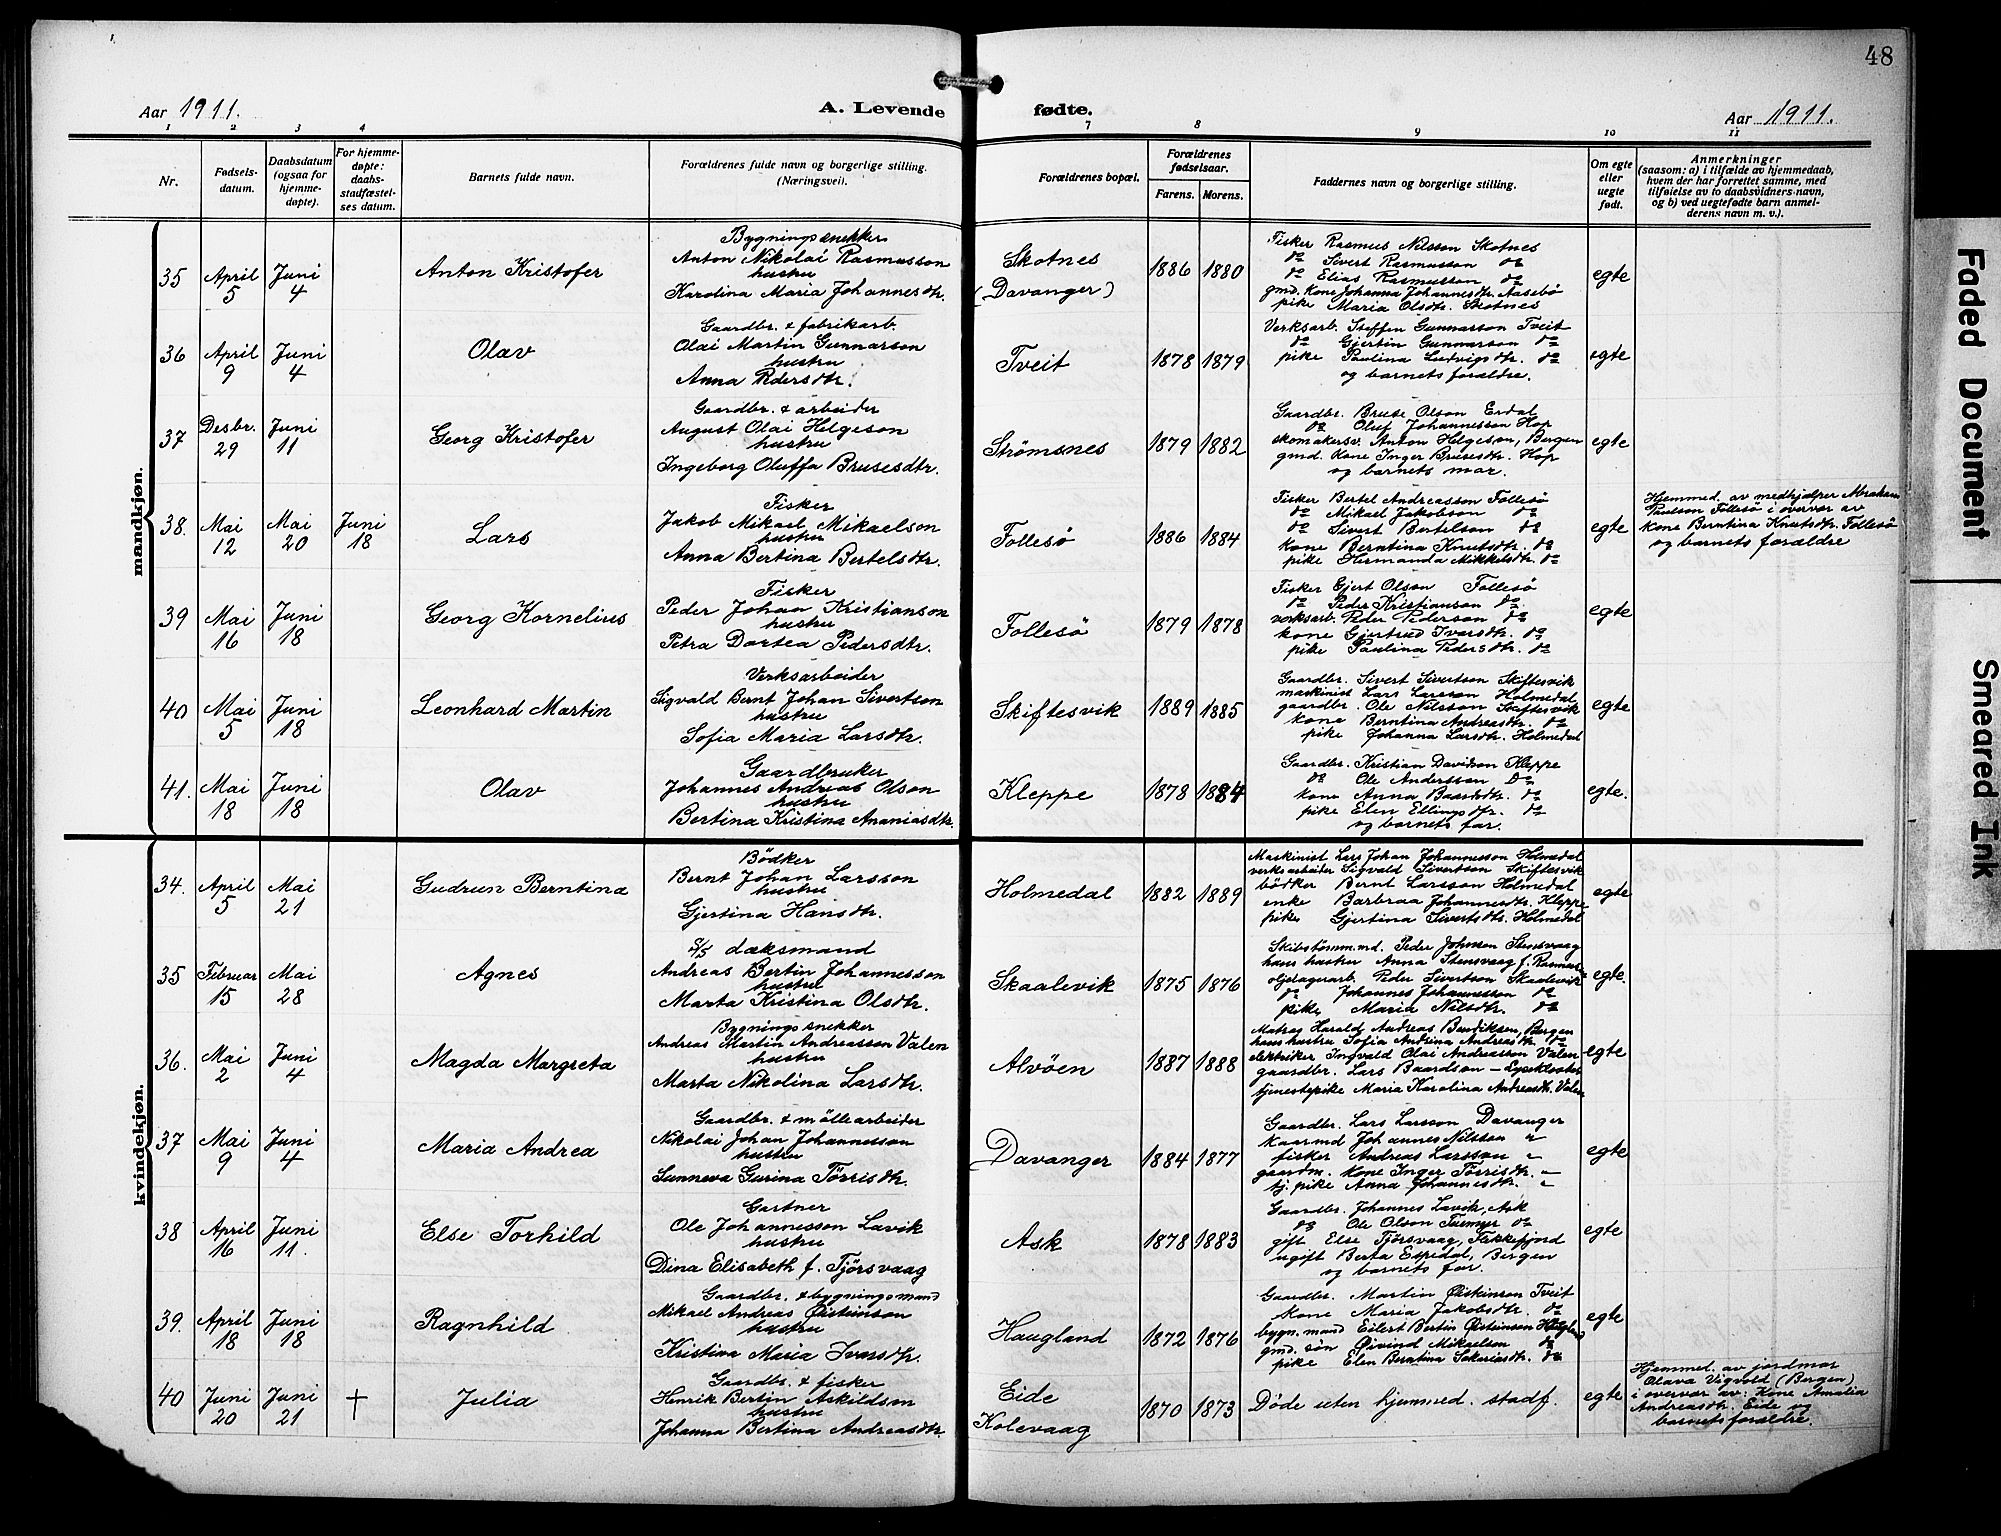 48
Aar 1911. A. Levende fødte. Aar 1911.
1 2 3 4 7 8 9 10 11
Nr.
Fødsels-
datum.
Daabsdatum
(ogsaa for
hjemme-
døpte).
For hjemme-
døpte:
daabs-
stadfæstel-
ses datum.
Barnets fulde navn.
Forældrenes fulde navn og borgerlige stilling.
(Næringsvei).
Forældrenes bopæl.
Forældrenes
fødselsaar.
Farens. Morens.
Faddernes navn og borgerlige stilling.
Om egte
eller
uegte
født.
Anmerkninger
(saasom: a) i tilfælde av hjemmedaab,
hvem der har forrettet samme, med
tilføielse av to daabsvidners-navn,
og b) ved uegtefødte barn anmel-
derens navn m. v.).
mandkjøn.
35 April 5 Juni 4 Anton Kristofer
Bygningssnekker
Anton Nikolai Rasmusson
hustru
Karolina Maria Johannesdtr.
Skotnes
(Davanger)
1886 1880
Fisker Rasmus Nilsson Skotnes
do Sivert Rasmusson do
do Elias Rasmusson do
gmd. kone Johanna Johannesdtr. Aasebö
pike Maria Olsdtr. Skotnes
egte
36 April 9 Juni 4 Olav
Gaardbr. & fabrikarb.
Olai Martin Gunnarson
hustru
Anna Pedersdtr.
Tveit
1878 1879
Verksarb. Steffen Gunnarsson Tveit
do Gjertin Gunnarson do
pike Paulina Ludvigsdtr. do
og barnets forældre.
egte
37 Desbr. 29 Juni 11 Georg Kristofer
Gaardbr. & arbeider
August Olai Helgeson
hustru
Ingeborg Oluffa Brusesdtr.
Strømsnes
1879 1882
Gaardbr. Bruse Olson Erdal
do Oluf Johannesson Hop
skomakersv. Anton Helgeson, Bergen
gmd. kone Inger Brusesdtr. Hop
og barnets mor.
egte
38. Mai 12 Mai 20 Juni 18 Lars
Fisker
Jakob Mikael Mikaelson
hustru
Anna Bertina Bertelsdtr.
Follesø
1886 1884
Fisker Bertel Andreasson Follesö
do Mikael Jakobson do
do Sivert Bertelson do
kone Berntina Knutsdtr. do
pike Hermanda Mikkelsdtr. do
egte
Hjemmed. av medhjælper Abraham
Paulson Follesö i overvær av
kone Berntina Knutsdtr. Follesö
og barnets forældre
39 Mai 16 Juni 18 Georg Kornelius
Fisker
Peder Johan Kristianson
hustru
Petra Dortea Pedersdtr.
Follesø
1879 1878
Fisker Gjert Olson Follesö
do Peder Kristianson do
verksarb. Peder Pederson do
kone Gjertrud Ivarsdtr. do
pike Paulina Pedersdtr. do
egte
40 Mai 5 Juni 18 Leonhard Martin
Verksarbeider
Sigvald Bernt Johan Sivertson
hustru
Sofia Maria Larsdtr.
Skiftesvik
1889 1885
Gaardbr. Sivert Sivertson Skiftesvik
maskinist Lars Larsson Holmedal
gaardbr. Ole Nilsson Skiftesvik
kone Berntina Andreasdtr. do
pike Johanna Larsdtr. Holmedal
egte
41. Mai 18 Juni 18 Olav
Gaardbruker
Johannes Andreas Olson
hustru
Bertina Kristina Ananiasdtr.
Kleppe
1878 1884
Gaardbr. Kristian Davidson Kleppe
do Ole Andersson do
kone Anna Baardsdtr. do
pike Elen Ellingsdtr. do
og barnets far.
egte.
kvindekjøn.
34. April 5 Mai 21 Gudrun Berntina
Bödker
Bernt Johan Larsson
hustru
Gjertina Hansdtr.
Holmedal
1882 1889
Maskinist Lars Johan Johannesson Holmedal
verksarbeider Sigvald Sivertson Skiftesvik
bödker Bernt Larsson Holmedal
enke Barbraa Johannesdtr. Kleppe
pike Gjertina Sivertsdtr. Holmedal
egte
35 Februar 15 Mai 28 Agnes
S/S dæksmand
Andreas Bertin Johannesson
hustru
Marta Kristina Olsdtr.
Skaalevik
1875 1876
Skibstømm.md. Peder Johnson Stensvaag
hans hustru Anna Stensvaag f. Rasmus-
oljelagerarb. Peder Sivertson Skaalevik
do Johannes Johannesson do
pike Maria Nilsdtr. do
egte.
36. Mai 2 Juni 4 Magda Margreta
Bygningssnekker
Andreas Martin Andreasson Valen
hustru
Marta Nikolina Larsdtr.
Alvöen
1887 1888
Matros Harald Andreas Bendiksen, Bergen
hans hustru Sofia Andina Andreasdtr. do
elektriker Ingvald Olai Andreasson Valen
gaardbr. Lars Baardson – Lyseklostr
tjenestepike Maria Karolina Andreasdtr. Valen
egte
37 Mai 9 Juni 4 Maria Andrea
Gaardbr. & möllearbeider
Nikolai Johan Johannesson
hustru
Sunneva Gurina Törrisdtr.
Davanger
1884 1877
Gaardbr. Lars Larsson Davanger
kaarmd Johannes Nilsson "
fisker Andreas Larsson "
gaardm. kone Inger Törrisdtr. "
tj. pike Anna Johannesdtr. "
egte
38 April 16 Juni 11. Else Torhild
Gartner
Ole Johannesson Lavik
hustru
Dina Elisabeth f. Tjörsvaag
Ask
1878 1883
Gaardbr. Johannes Lavik, Ask
do Ole Olson Turmyr do
gift Else Tjörsvaag, Flekkefjord
ugift Berta Espedal, Bergen
og barnets far.
egte
39. April 18 Juni 18 Ragnhild
Gaardbr. & bygningsmand
Mikael Andreas Øisteinson
hustru
Kristina Maria Ivarsdtr.
Haugland
1872 1876
Gaardbr. Martin Øisteinson Tveit
kone Maria Jakobsdtr. do
bygn.mand Eilert Bertin Øisteinson Haugland
gmd. søn Øivind Mikaelsen do
pike Elen Berntina Sakariasdtr. do
egte
40 Juni 20 Juni 21 † Julia
Gaardbr. & fisker
Henrik Bertin Askildsen
hustru
Johanna Bertina Andreasdtr.
Eide
Kolevaag
1870 1873
Døde uten hjemmed. stadf.
egte
Hjemmed. av jordmor
Olava Vigvold (Bergen)
i overvær av: kone Amalia
Andreasdtr. Eide og
barnets forældre.
Faded Document
Smeared Ink